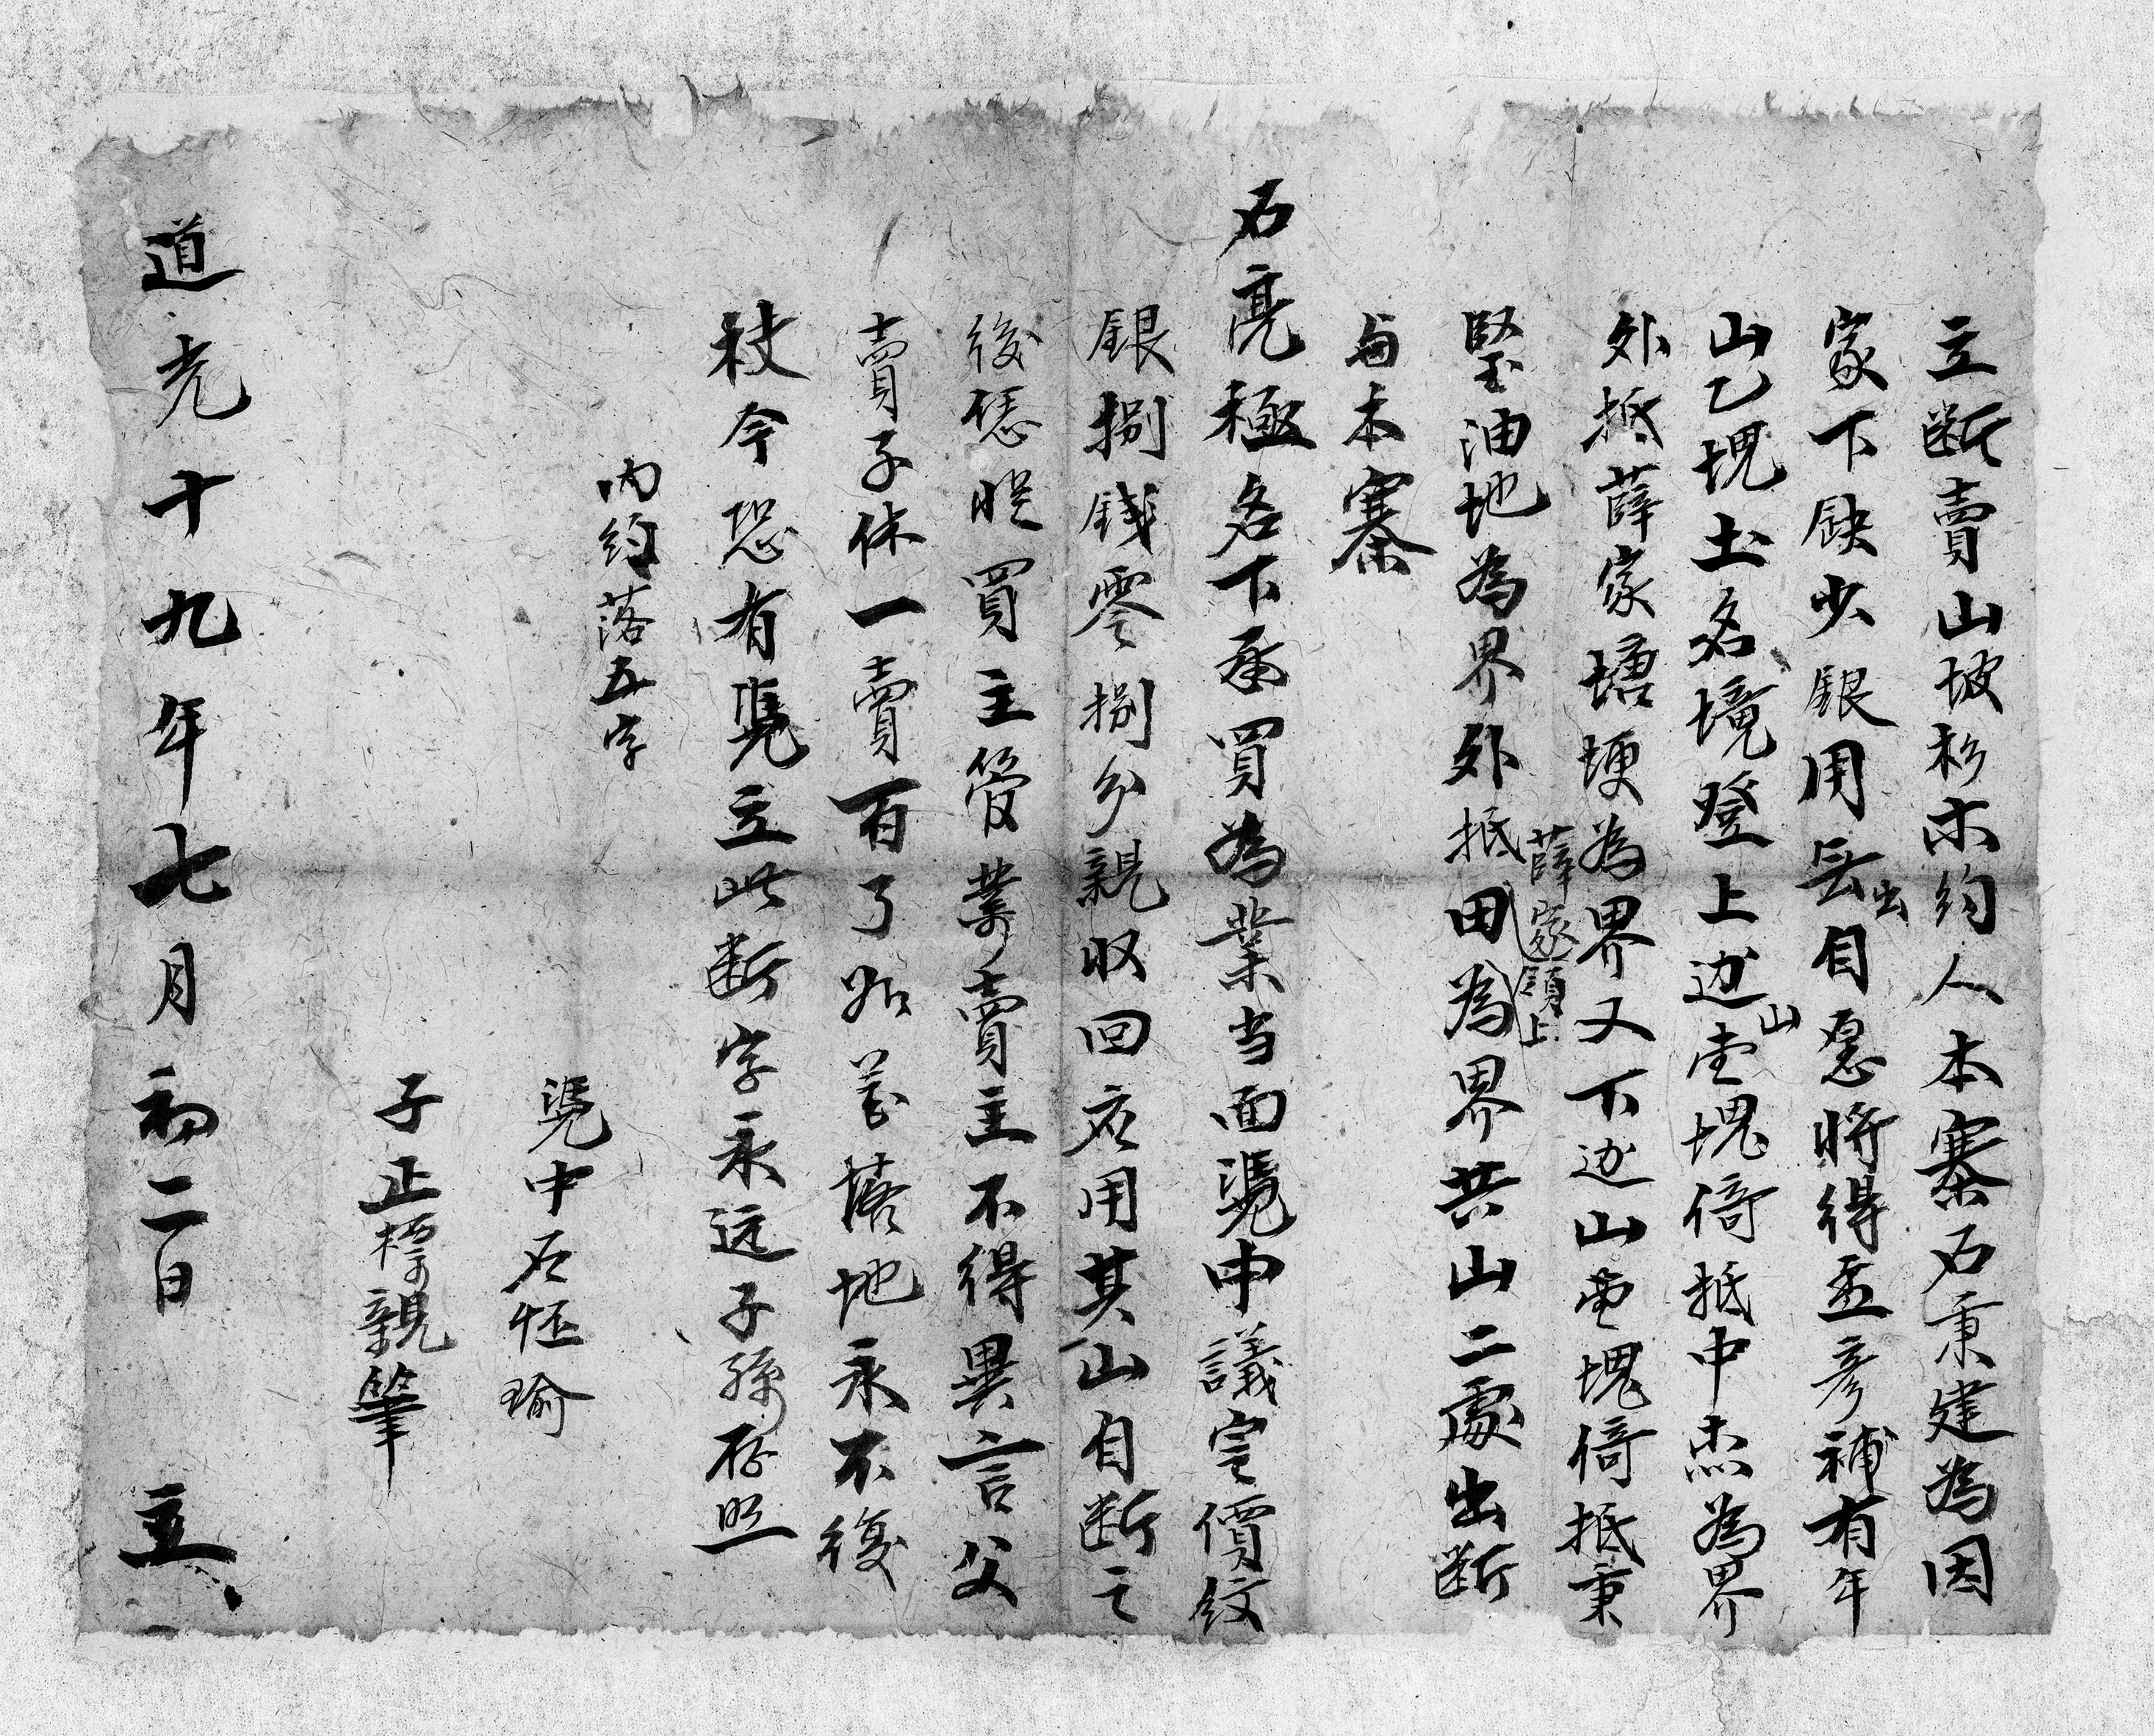 立断賣山坡杉木約人本寨石秉建為因
家下缺少銀用無出自愿將得孟彦補有年
山乙塊土名境登上边山壹塊倚抵中杰為界
外抵薛家塘埂為界又下边山壹塊倚抵秉
堅油地為界外抵薛家領上田為界共山二處出断
与本寨
石亮極名下承買為業当面凴中議定價紋
銀捌錢零捌分親収回店用其山自断之
後恁從買主管業賣主不得異言父
賣子休一賣百了如花落地永不復
枝今恐有凴立此断字永远子孫存照
内約落五字
凴中石恆瑜
子正標親筆
道光十九年七月初二日 立